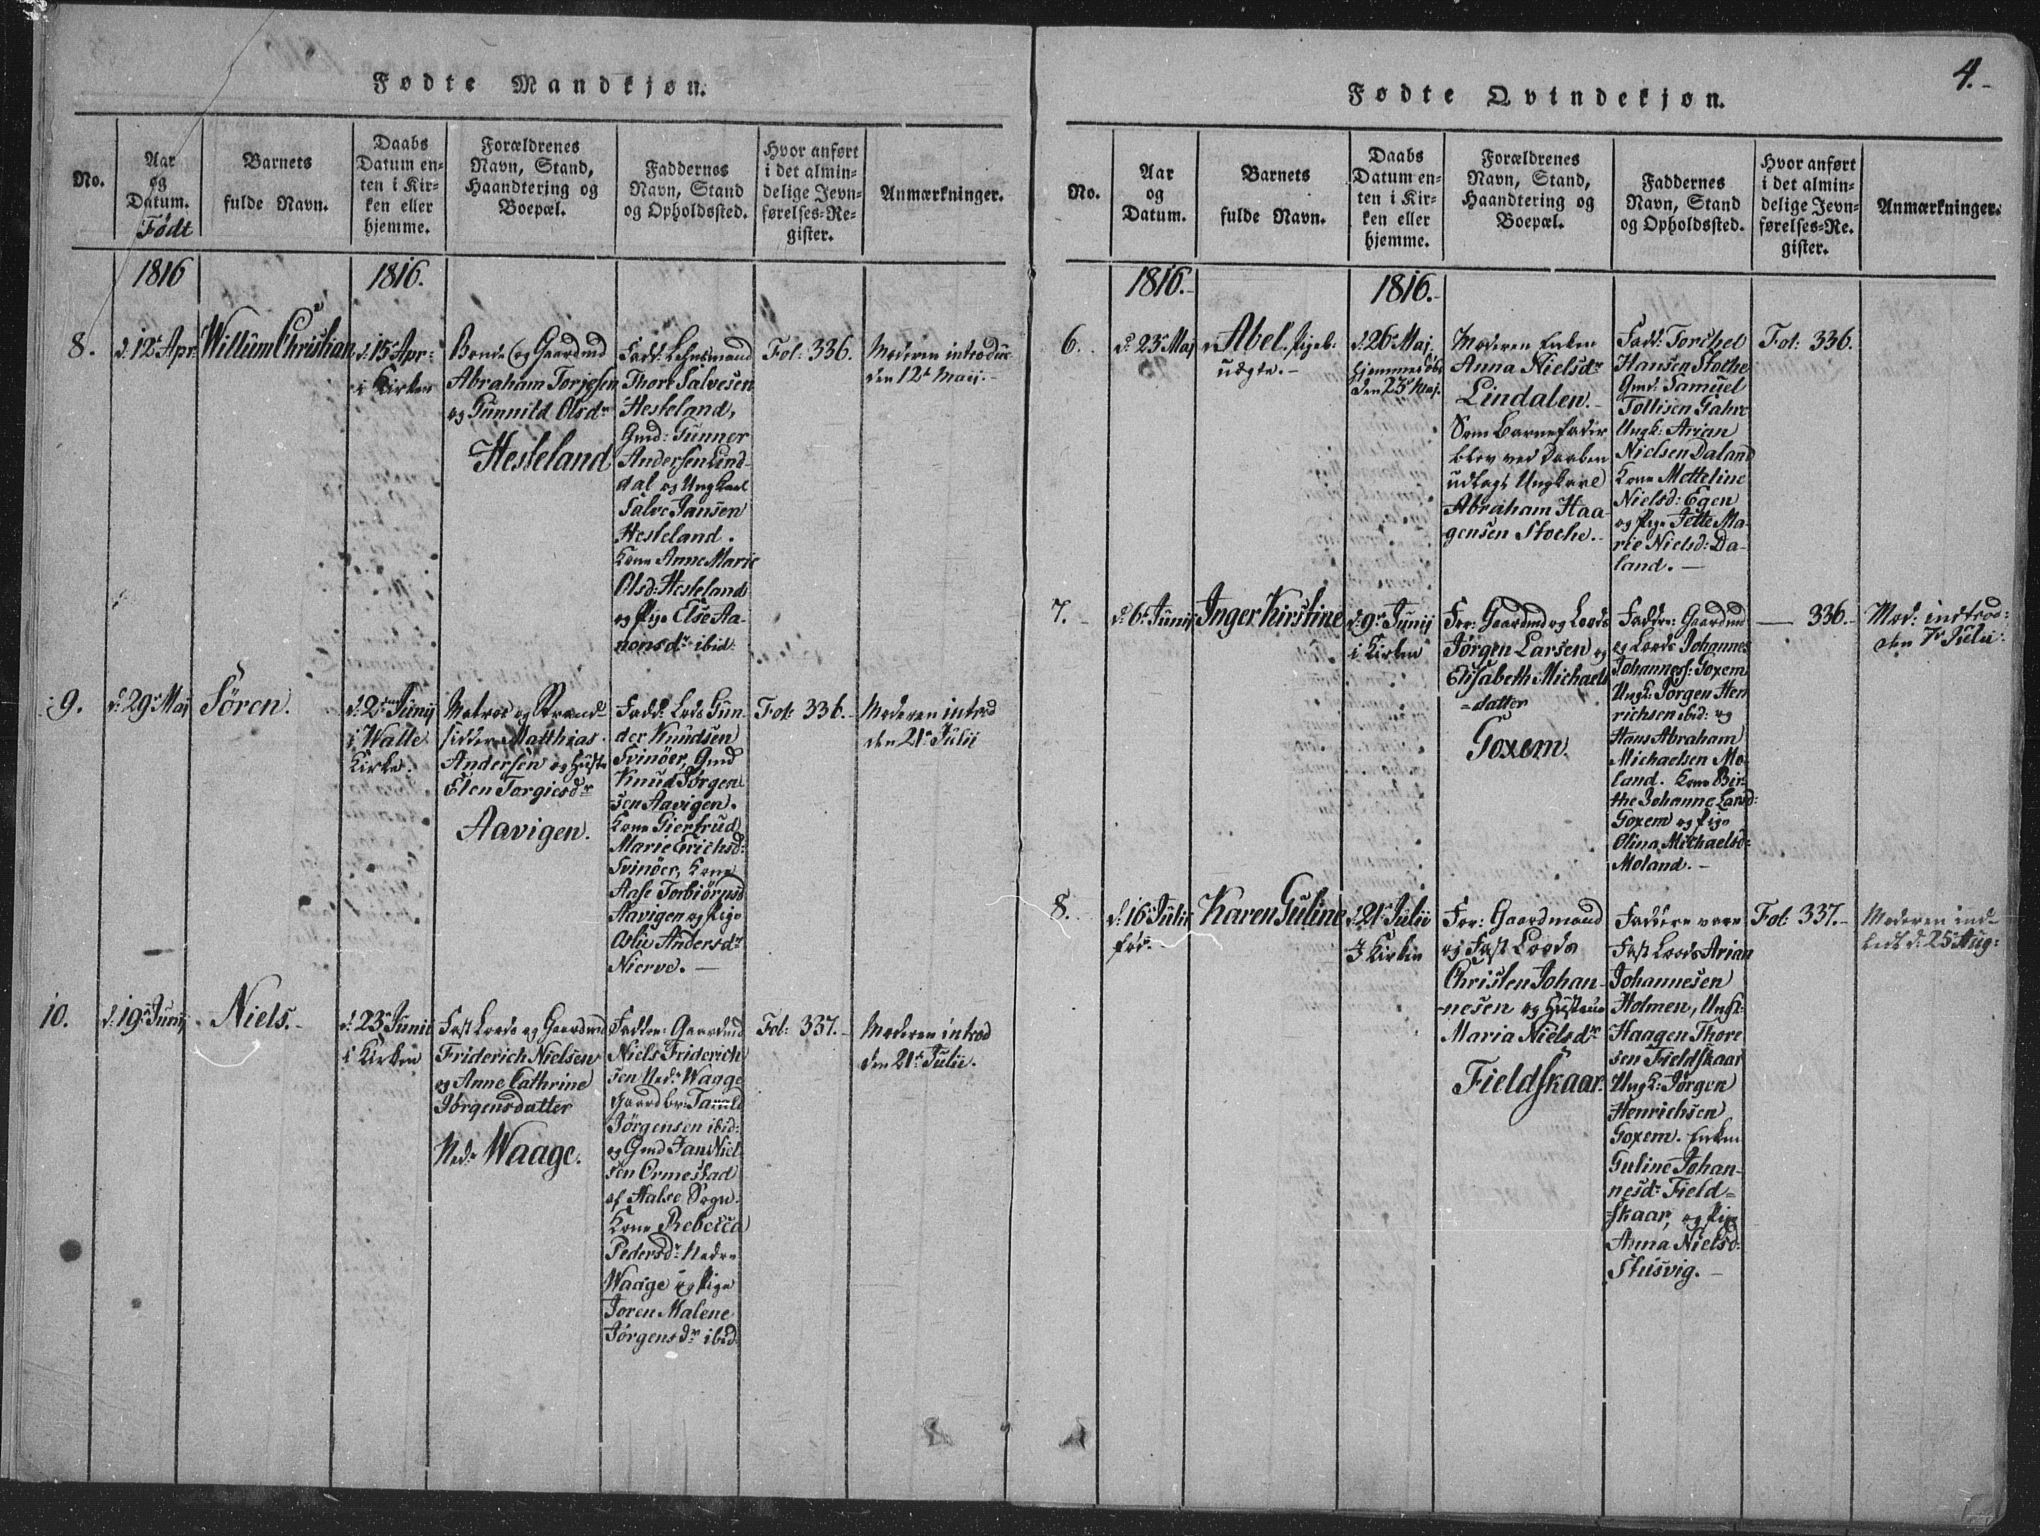 4.
Fødte Mandkjøn.
No.
Aar
og
Datum.
Født
Barnets
fulde Navn.
Daabs
Datum en-
ten i Kir-
ken eller
hjemme.
Forældrenes
Navn, Stand,
Haandtering og
Boepæl.
Faddernes
Navn, Stand
og Opholdssted.
Hvor anført
i det almin-
delige Jevn-
førelses-Re-
gister.
Anmærkninger.
1816
1816.
8.
d. 12t Apr:
Willum Christian
d. 15t Apr:
i Kirken
Bonde og Gaardmd
Abraham Torjesen
og Gunnild Olsdr
Hesleland
Fadd: Lehnsmand
Thore Salvesen
Hesleland,
Gmd: Gunner
Andersen Lind-
dal og Ungkarl
Salve Jansen
Hesleland.
Kone Anne Marie
Olsd: Hesleland
og Pige Else Aa-
nonsdr ibid:
Fol: 336.
Moderen introdus
den 12t Maij.
9.
d. 29t Maj
Sören.
d. 2den Junij
i Walle
Kirke.
Matros og Strand-
sidder Matthias
Andersen og Hustr
Elen Torgiesdr
Aavigen.
Fadd: Lods Gun-
der Knudsen
Svinöer, Gmd
Knud Jörgen-
sen Aavigen.
Kone Giertrud
Marie Erichsd:
Svinöer, Kone
Aase Torbiörnsd
Aavigen og Pige
Aslie Andersdr
Nierve.
Fol: 336.
Moderen introd
den 21t Julii
10.
d. 19t Junij
Niels.
d. 23t Junii
i Kirken
Fast Loods og Gaardmd
Friderich Nielsen
og Anne Cathrine
Jörgensdatter
Nedr Waage.
Faddre: Gaardmd
Niels Friderich
sen Nedr Waage
Gaardbr:
Jörgensen ibid:
og Gmd Jan Niel-
sen Ormestad
af Halse Sogn.
Kone Rebecca
Pedersdr Nedre
Waage og Pige
Joren Malene
Jörgensdr ibid:
Fol: 337.
Moderen introd
den 21t Julii.
Fødte Qvindekjøn.
No.
Aar
og
Datum.
Barnets
fulde Navn.
Daabs
Datum en-
ten i Kir-
ken eller
hjemme.
Forældrenes
Navn, Stand,
Haandtering og
Boepæl.
Faddernes
Navn, Stand
og Opholdssted.
Hvor anført
i det almin-
delige Jevn-
førelses-Re-
gister.
Anmærkninger.
1816.
1816.
6.
d. 23t Maj
Abel, Pigeb:
uægte.
d. 26t Maj,
Hjemmedöbt
den 23t Maj.
Moderen Enken
Anna Nielsdr
Lindalen.
Som Barnefader
blev ved Daaben
udlagt Ungkarl
Abraham Haa-
gensen Stoche.
Fadd: Torchel
Hansen Stoche
Gmd: Samuel
Tollisen Gahre
Ungk: Arian
Nielsen Daland
Kone Metteline
Nielsd: Egen
og Pige Jette Ma-
rie Nielsd: Da-
land.
Fol: 336.
7.
d. 6t Junij
Inger Kirstine
d. 9t Junij
i Kirken
For: Gaardmd og Loods
Jörgen Larsen og
Elisabeth Michaels
datter
Goxem.
Faddre: Gaardmd
og Loods Johannes
Johanness: Goxem
Ungk: Jörgen Hen
richsen ibid: og
Hans Abraham
Michaelsen Mo-
land. Kone Bir-
the Johanne Larsd:
Goxem og Pige
Olina Michaelsd:
Moland.
336.
Mod: introd:
den 7t Julii.
8.
d. 16t Julii
fød.
Karen Guline
d. 21t Julii
I Kirken
For: Gaardmand
og Fast Loods
Christen Johan-
nesen og Hustrue
Maria Nielsdr
Fieldskaar.
Faddere vare
Fast Loods Arian
Johannesen
Holmen, Ungk:
Haagen Thore
sen Fieldskaar
Ungk: Jörgen
Henrichsen
Goxem. Enken
Guline Johan-
nesdr Field-
skaar, og Pige
Anna Nielsd:
Stusvig.
Fol: 337.
Moderen ind-
ledt d. 25t Aug: